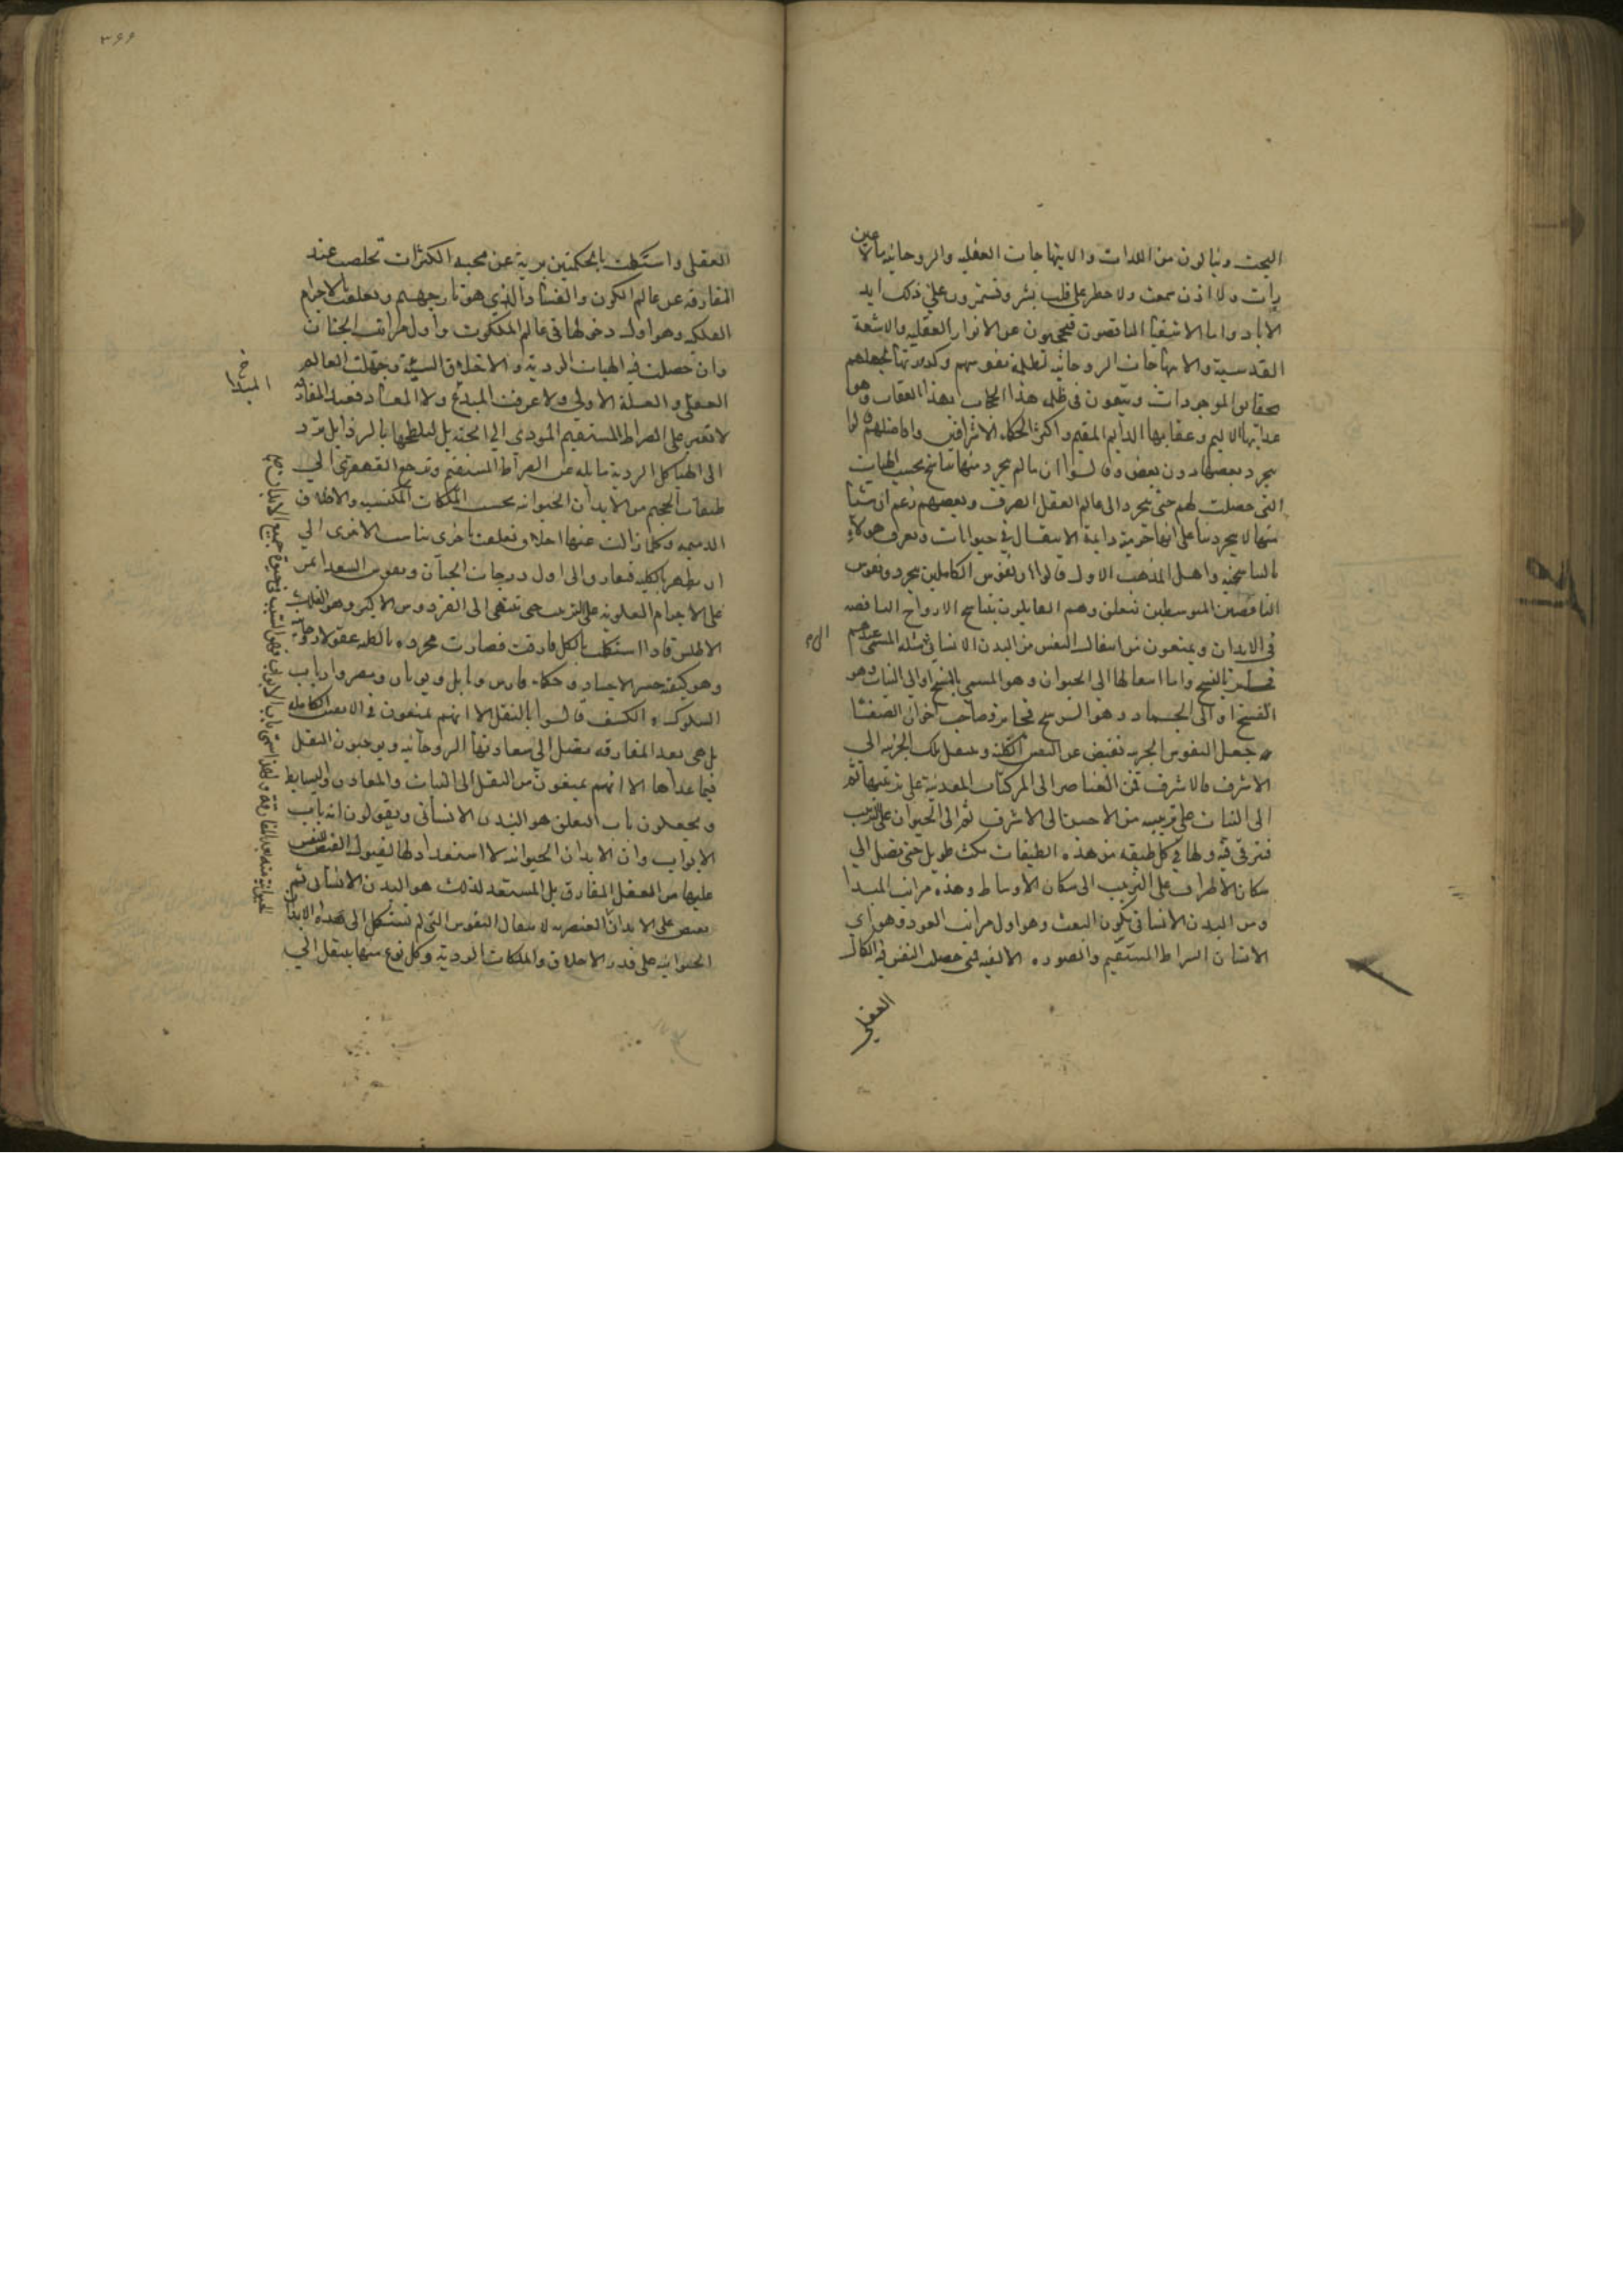 البحت وينالون من اللذات والابتهاجات العقليه والروحانيه مالا عين
رأت ولا اذن سمعت ولا خطر على قلب بشر ويستمرون على ذلك ابد
الاباد واما الاشقيا الناقصون فيحجبون عن الانوار العقليه والاشعة
القدسية والابتهاجات الروحانيه لظلمة نفوسهم وكدورتها لجهلهم
بحقايق الموجودات ويتيهون فى ظلمه هذا الحجاب وهذا العقاب وهو
عذابها الاليم وعقابها الدايم المقيم واكثر الحكماء الاشراقيين وافاضلهم قالوا
بتجرد بعضها دون بعض وقالوا ان مالم يتجرد منها تناسخ بحسب الهيات
التى حصلت لهم حتى تتجرد الى عالم العقل الصرف وبعضهم زعم ان شيئا
منها لا يتجرد بناء على انها جرمية دايمة الانتقال فى حيوانات ويعرف هولاء
بالتناسخيه واهل المذهب الاول قالوا ان نفوس الكاملين تتجرد ونفوس
الناقصين المتوسطين تتعلق وهم القايلون بتناسخ الارواح الناقصه
فى الابدان ويمنعون من انتقال النفس من البدن الانسانى الى مثله المسمى عندهم
بالنسخ واما انتقالها الى الحيوان وهو المسمى بالمسخ او الى النبات وهو
الفسخ او الى الجماد وهو الرسخ فجايز وصاحب اخوان الصفا
جعل النفوس الجزيه تفيض عن النفس الكلية وتنتقل تلك الجزيه الى
الاشرف فالاشرف فمن العناصر الى المركبات المعدنية على ترتيبها ثم
الى النبات على ترتيبه من الاخس الى الاشرف ثم الى الحيوان على الترتيب
فتترقى فيه ولها فى كل طبقه من هذه الطبقات مكث طويل حتى تصل الى
مكان الاطراف على الترتيب الى مكان الاوساط وهذه مراتب المبدا
ومن البدن الانسانى يكون البعث وهو اول مراتب العود وهو اى
الانسان الصراط المستقيم والصوره الالفيه فمتى حصلت النفس فيه الكمال
العقلى
٣٦٦
العقلى واستكملت بالحكمتين برية عن محبه الكثرات تخلصت عند
المفارقه عن عالم الكون والفساد الذى هو نار جهنم وتعلقت بالاجرام
الفلكيه وهو اول دخولها فى عالم الملكوت واول مراتب الجنان
وان حصلت فيه الهيات الردية والاخلاق السيئة وجهلت العالم
العقلى والعلة الاولى ولا عرفت المبدا ولا المعاد فعند المفارقه
لا تعبر على الصراط المستقيم المودى الى الجنة بل لتلطخها بالرذايل ترد
الى الهياكل الردية مايله عن الصراط المستقيم وترجع القهقرى الى
طبقات الجحيم من الابدان الحيوانيه بحسب الملكات المكتسبه والاخلاق
الذميمه وكلما زالت عنها اخلاق تعلقت باخرى تناسب الاخرى الى
ان تطهر بالكليه فتعاد الى اول درجات الجنان ونفوس السعدا تمر
على الاجرام العلويه على الترتيب حتى تنتهى الى الفردوس الاكبر وهو الفلك
الاطلس فاذا استكملت بالكل فارقت فصارت مجرده بالكليه عقولا روحانية
وهو كيفيه حشر الاجساد وحكماء فارس وبابل ويونان ومصر وارباب
السلوك والكشف قالوا بالنقل الا انهم يمنعون فى الانفس الكامله
بل هى بعد المفارقه تصل الى سعادتها الروحانيه ويوجبون النقل
فيما عداها الا انهم يمنعون من النقل الى النبات والمعادن والبسايط
ويجعلون باب التعلق هو البدن الانسانى ويقولون انه باب
الابواب وان الابدان الحيوانيه لا استعداد لها لقبول الفيض النفس
عليها من العقل المفارق بل المستعد لذلك هو البدن الانسانى ثم
يفيض على الابدان العنصريه لانتقال النفوس التى لم تستكمل الى هذه الابدان
الحيوانيه على قدر الاخلاق والملكات الردية وكل نوع منها ينتقل الى
المبدا خ